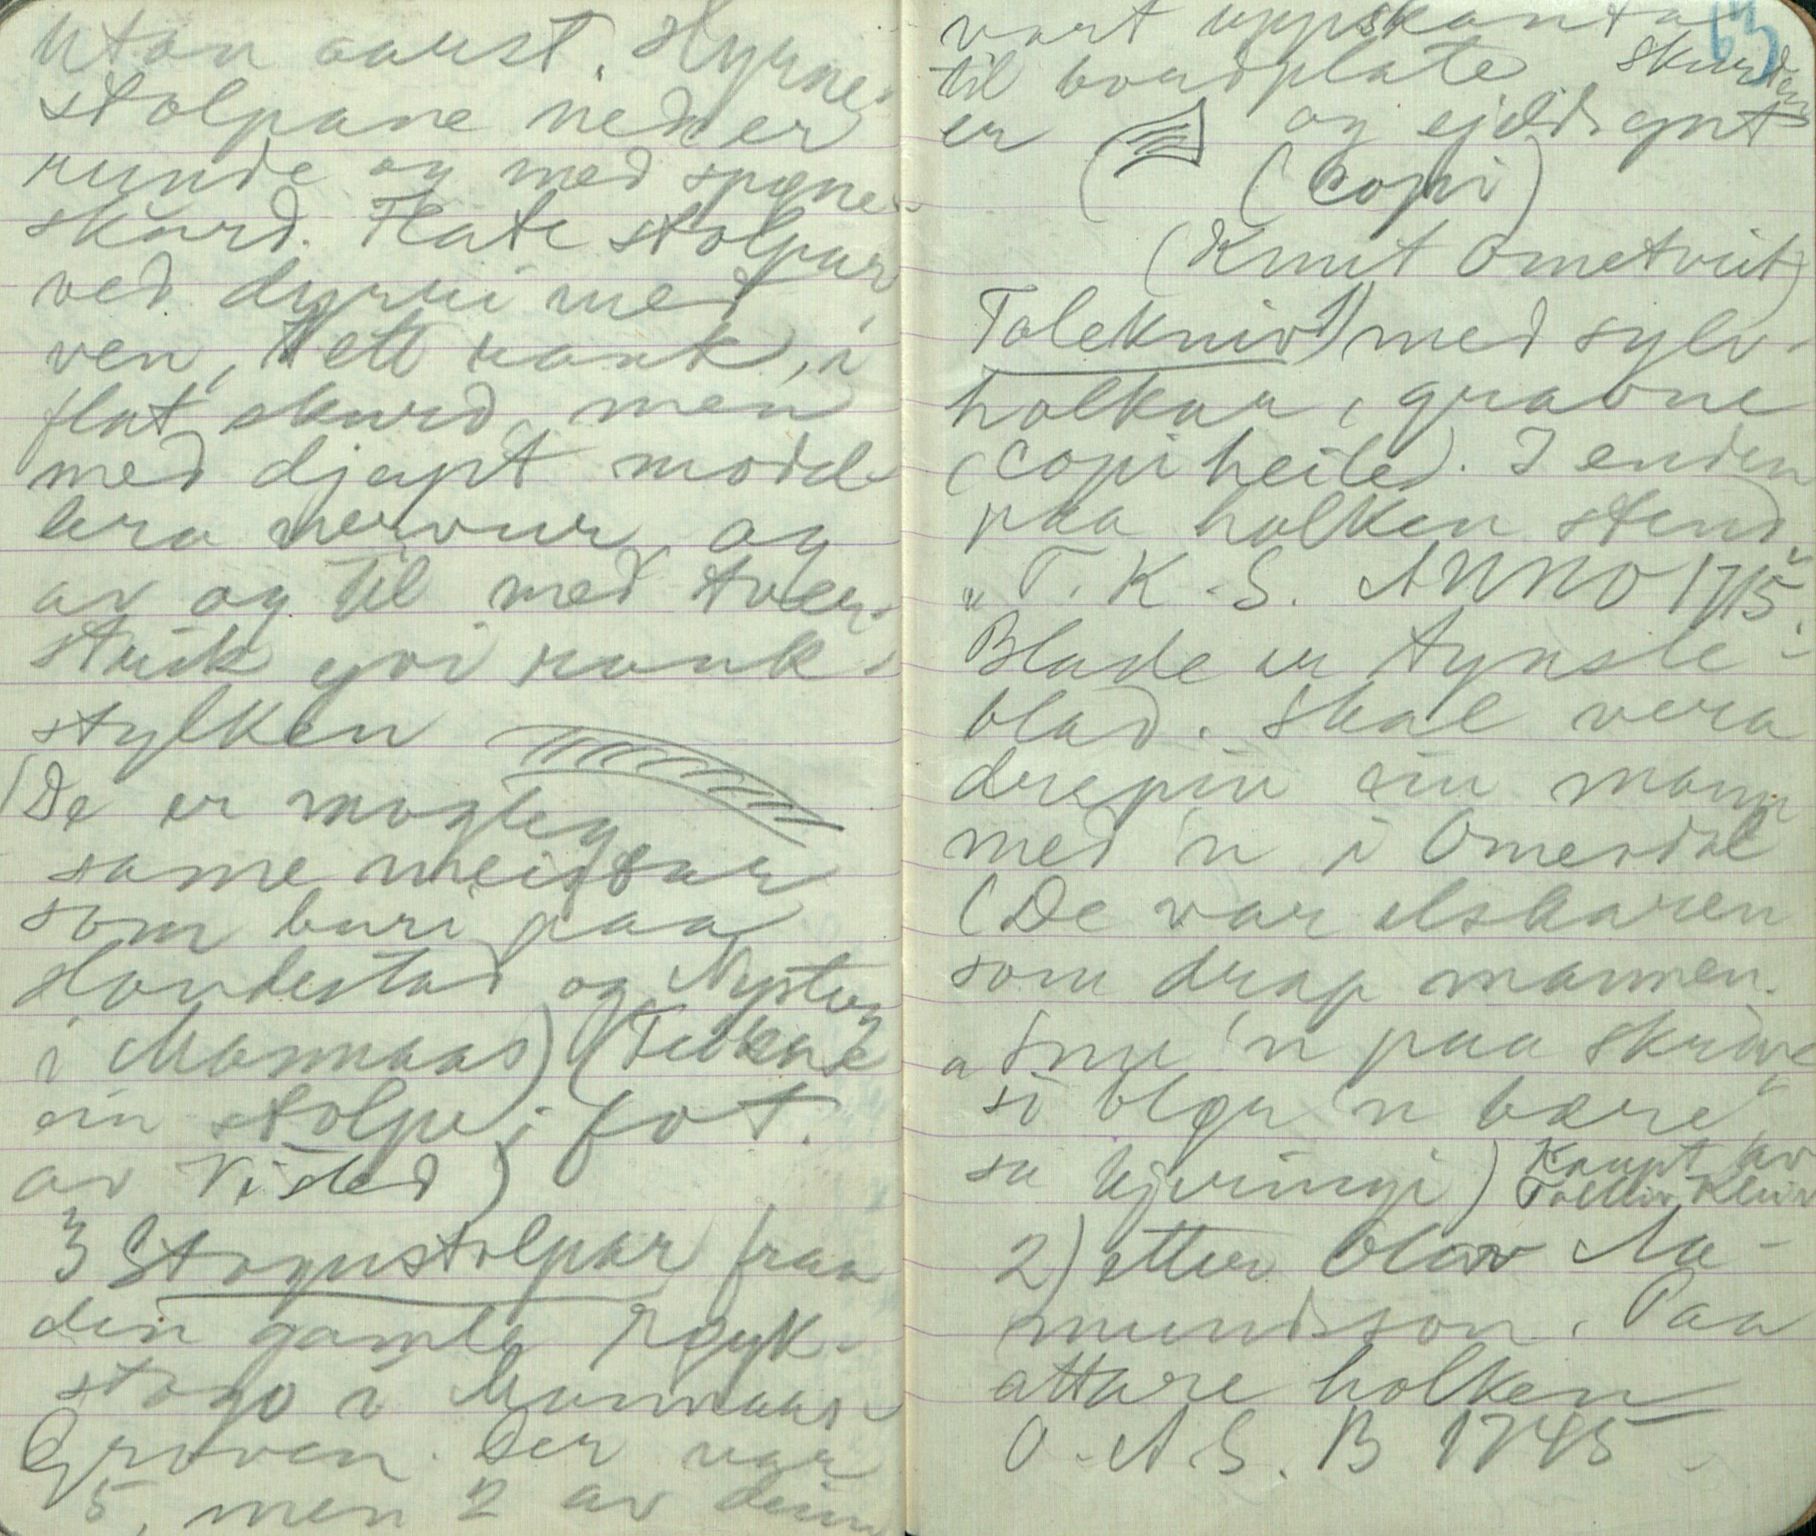 utan aarst. Hyrne-
stolpane ned er
runde og med spøne-
skurd. Flate stolpar
ved dyrri med
ven, tett rank, i
flat skurd, men
med djupt model-
lera nervur og
av og til med tver-
strik yvi rank-
stylken
(De er mogleg
same meistar
som buri paa
Hovdestad og Nystug
i Mannaas) (Teikne
ein stolpe i fot.
av Visted)
3 Stogustolpar fraa
den gamle Røyk-
stogo i Mannaas-
Groven. Der var
5, men 2 av deim
63
vart uppskanta
til bordplate. Skurden
er og ejeldsynt
(Copi)
(Knut Ometveit)
Tolekniv 1) med sylv-
holkar, gravne
(Copi heile). I enden
paa holken stend
"T. K. S. ANNO 1715".
Blade er Tynsle-
blad. Skal vera
drepin ein mann
med 'n i Omesdal
(De var elskaren
som drap mannen.
"Snu 'n paa skraave
so bløer 'n bære"
sa kjeringi) Kaupt av
Tallev Kleiv
2) etter Olav Aa-
mundsson. Paa
attare holken
O. A. S. B 1745.